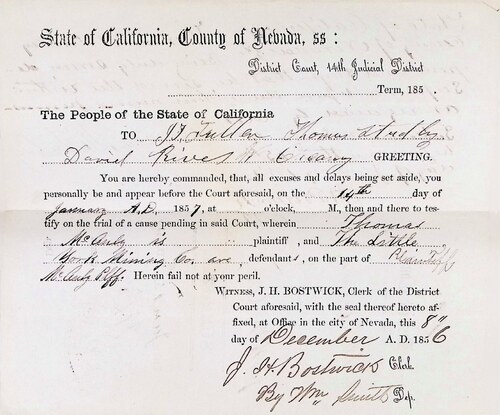 State of California, County of Nevada, ss:
District Court, 14th Judicial District
Term, 185 .
The People of the State of California
TO J. F. Fuller Thomas
David GREETING.
You are hereby commanded, that, all excuses and delays being set aside, you
personally be and appear before the Court aforesaid, on the 14th day of
January A.D. 1857, at o'clock, M., then and there to tes-
tify on the trial of a cause pending in said Court, wherein Thomas
McAuly is plaintiff, and The Little
York Mining Co. are, defendants, on the part of Plaintiff
McAuly Plff. Herein fail not at your peril.
WITNESS, J. H. BOSTWICK, Clerk of the District
Court aforesaid, with the seal thereof hereto af-
fixed, at Office in the city of Nevada, this 8"
day of December A. D. 1856
J. H. Bostwick Clerk.
By Wm Smith Dep.